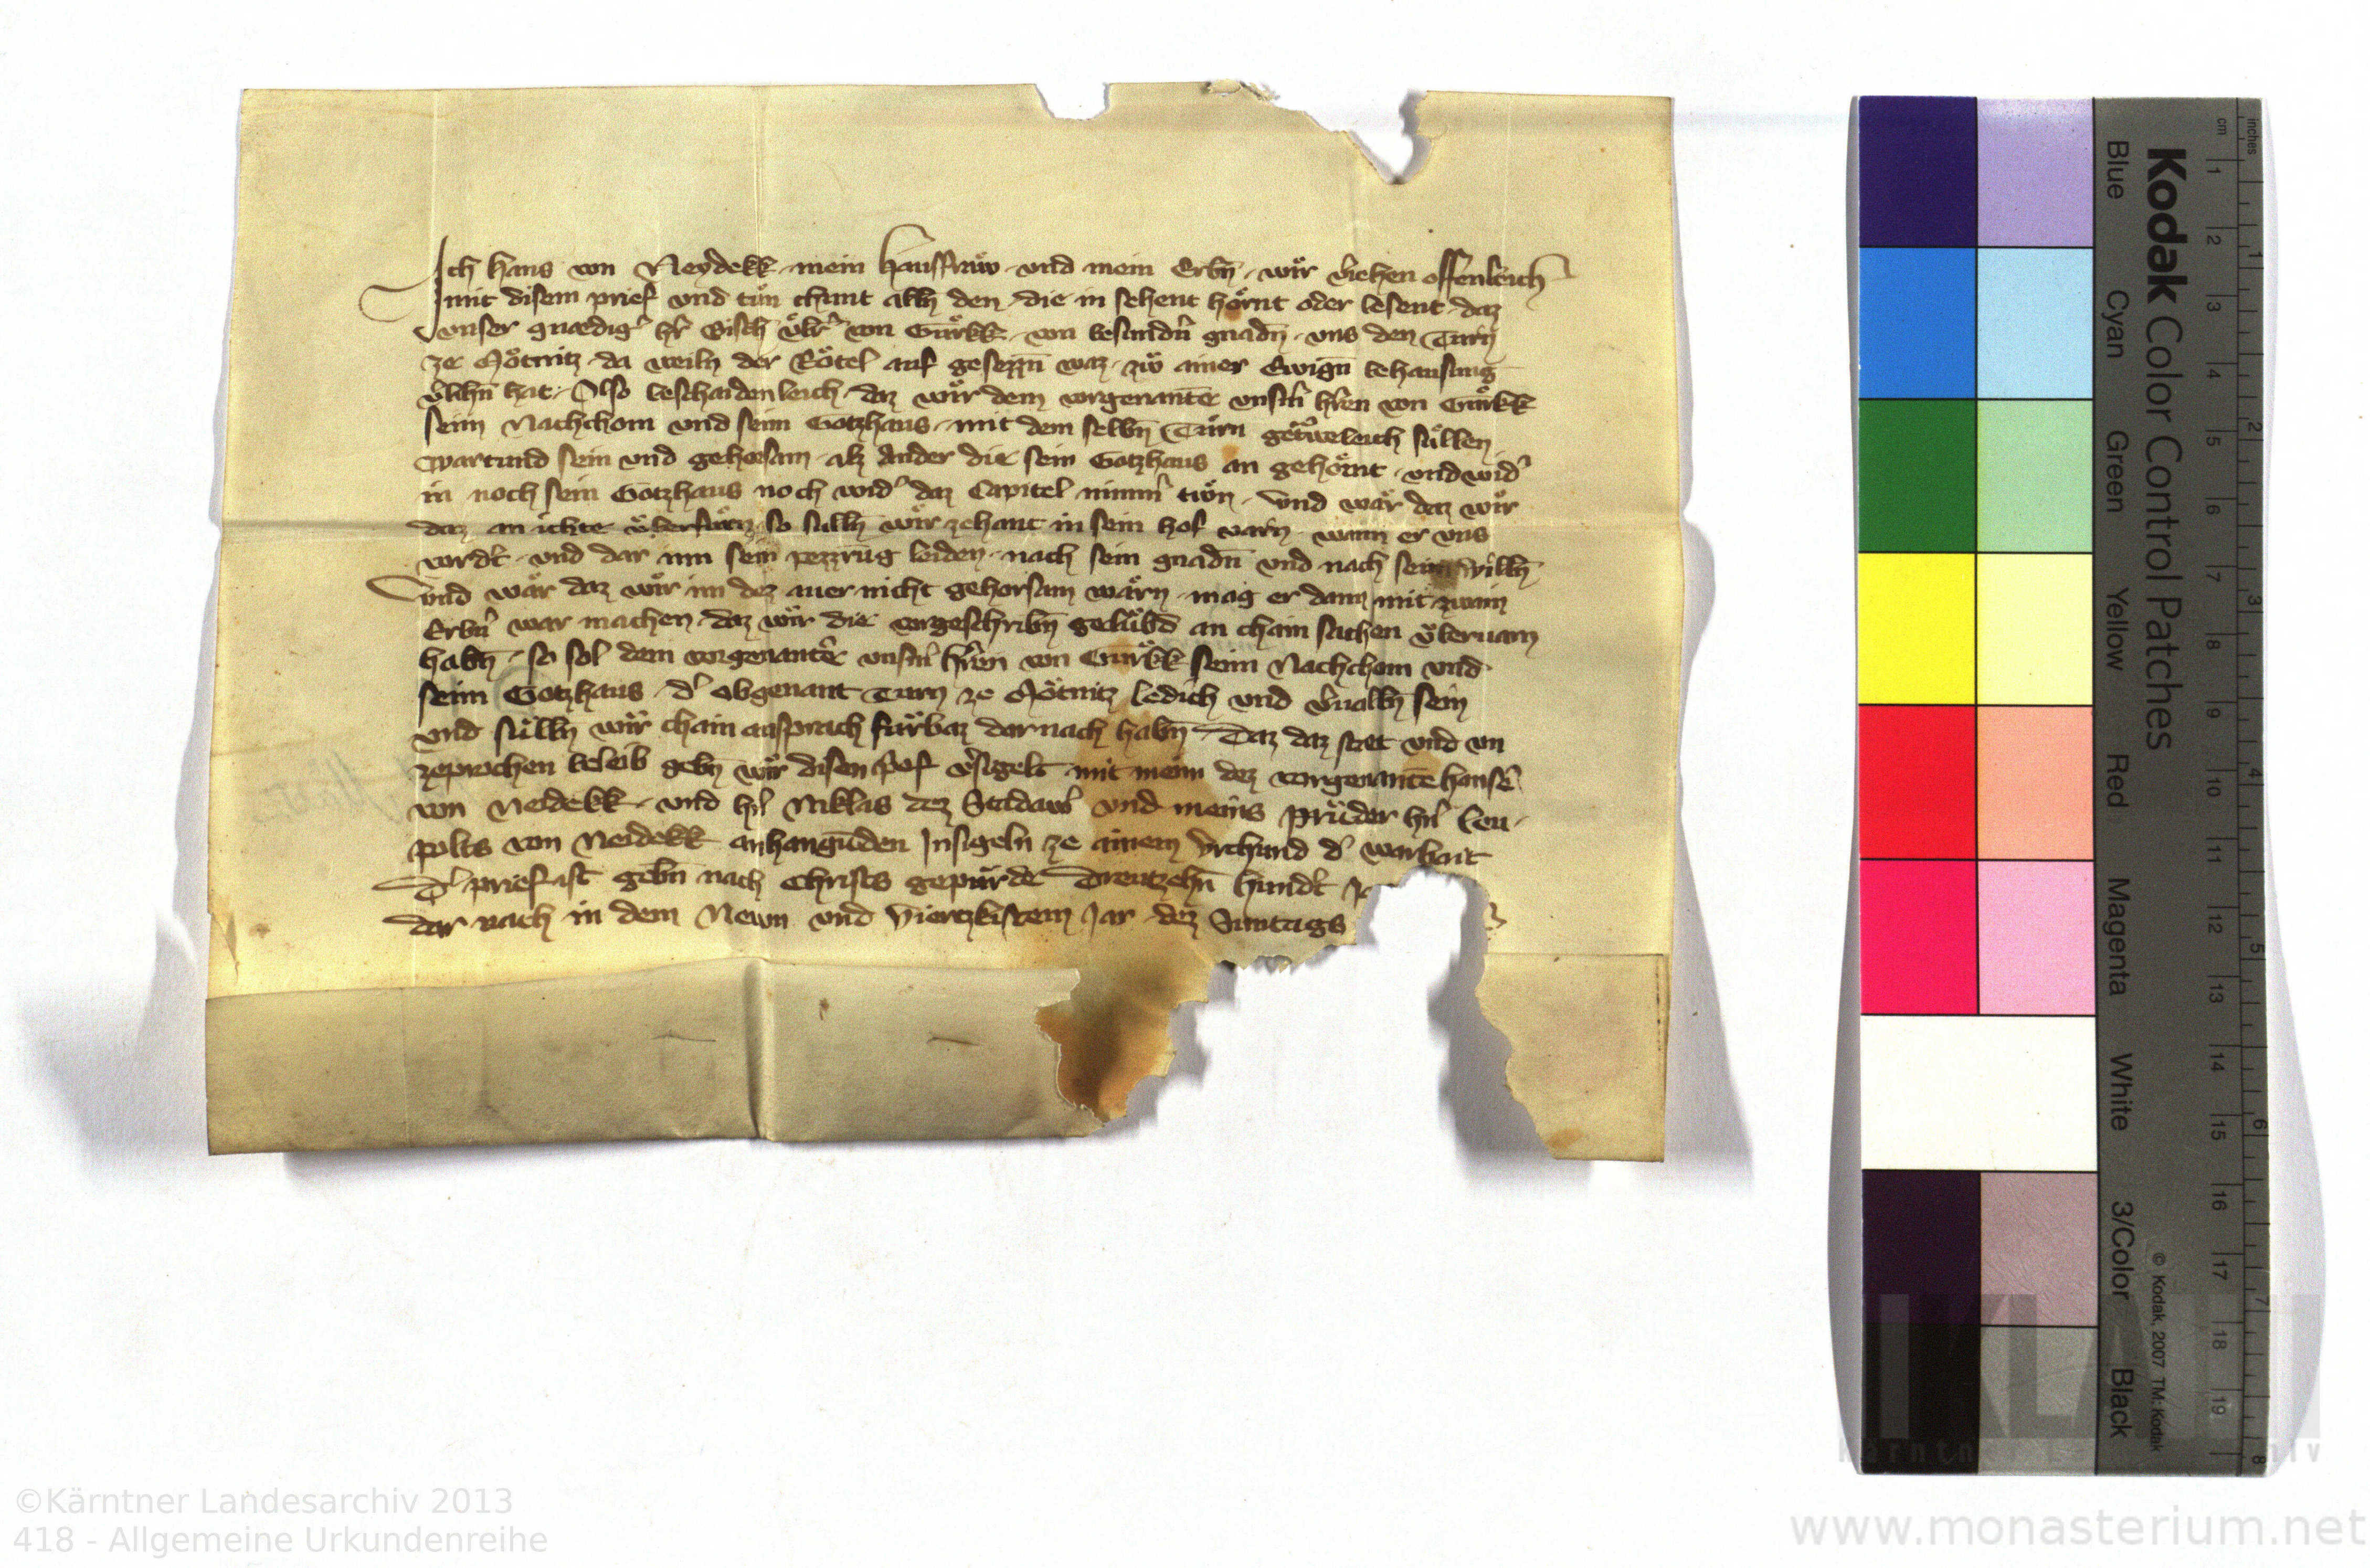 Ich Hans von Neydekk mein hausfraw vnd mein Erbn̄ wir v̓iehen offenleich
mit disem prief vnd tůn chunt alln̄ den die in sehent hoͤrnt oder lesent daz
vnser gnædig̓ hr̓ Bisch Vͦlr̓ von Gurkk von besundn̓ gnadn̄ vns den Turn
ze Moͤtnitz da weiln der Roͤtel auf gesezzn̄ waz zů ainer Ewign̄ behausung
v̓lihn̄ hat Also beschaidenleich daz wir dem vorgenantē vnsm̓ hr̓ren von Gurkk
seinn Nachchom vnd seim Gotzhaus mit dem selbn̄ Turn getrůeleich sullen
wartund sein vnd gehorsam alz Ander die sein Gotzhaus an gehoͤrnt vnd wid̓
in noch sein Gotzhaus noch wid̓ daz Capitel nimm̓ tůn Vnd wær daz wir
daz an ichte vͤberfuͤrn so sulln̄ wir zehant in sein hof varn wann er vns
vordt̓ vnd dar inn sein pezzrūg leiden nach sein gnadn̄ vnd nach seim willn̄
Vnd wær daz wir im dez auer nicht gehorsam wærn mag er dann mit zwain
Erbn̓ war machen daz wir die vorgeschribn̄ gelubd an chain sachen vͤberuarn
habn̄ so sol dem vorgenantē vnsm̓ hr̓ren von Gurkk seinn Nachchom vnd
seim Gotzhaus d̓ obgenant Turn ze Moͤtnitz ledich vnd v̓ualln̄ sein
vnd sulln̄ wir chain ansprach furbaz darnach habn̄ Daz daz stæt vnd vn
zeprochen beleib gebn̄ wir disen p̓ef v̓sigelt mit meim dez vorgenantē Hansē
von Neidekk vnd hn̓ Niklas dez vnd meins pruder hn̓ Leu
polts von Neidekk anhangūden Insigeln ze ainem Vrchund d̓ warhait
D̓ prief ist gebn̄ nach Christs gepurde Dreutzehn̄ hundt̓
dar nach in dem Newn vnd Viertzkistem Jar dez Suntags
Kodak Color Control Patches
Blue Cyan Green Yellow Red Magenta White 3/Color Black
© Kodak, 2007 TM: Kodak
cm 1 2 3 4 5 6 7 8 9 10 11 12 13 14 15 16 17 18 19
inches 1 2 3 4 5 6 7 8
KLA
©Kärntner Landesarchiv 2013
418 - Allgemeine Urkundenreihe
www.monasterium.net